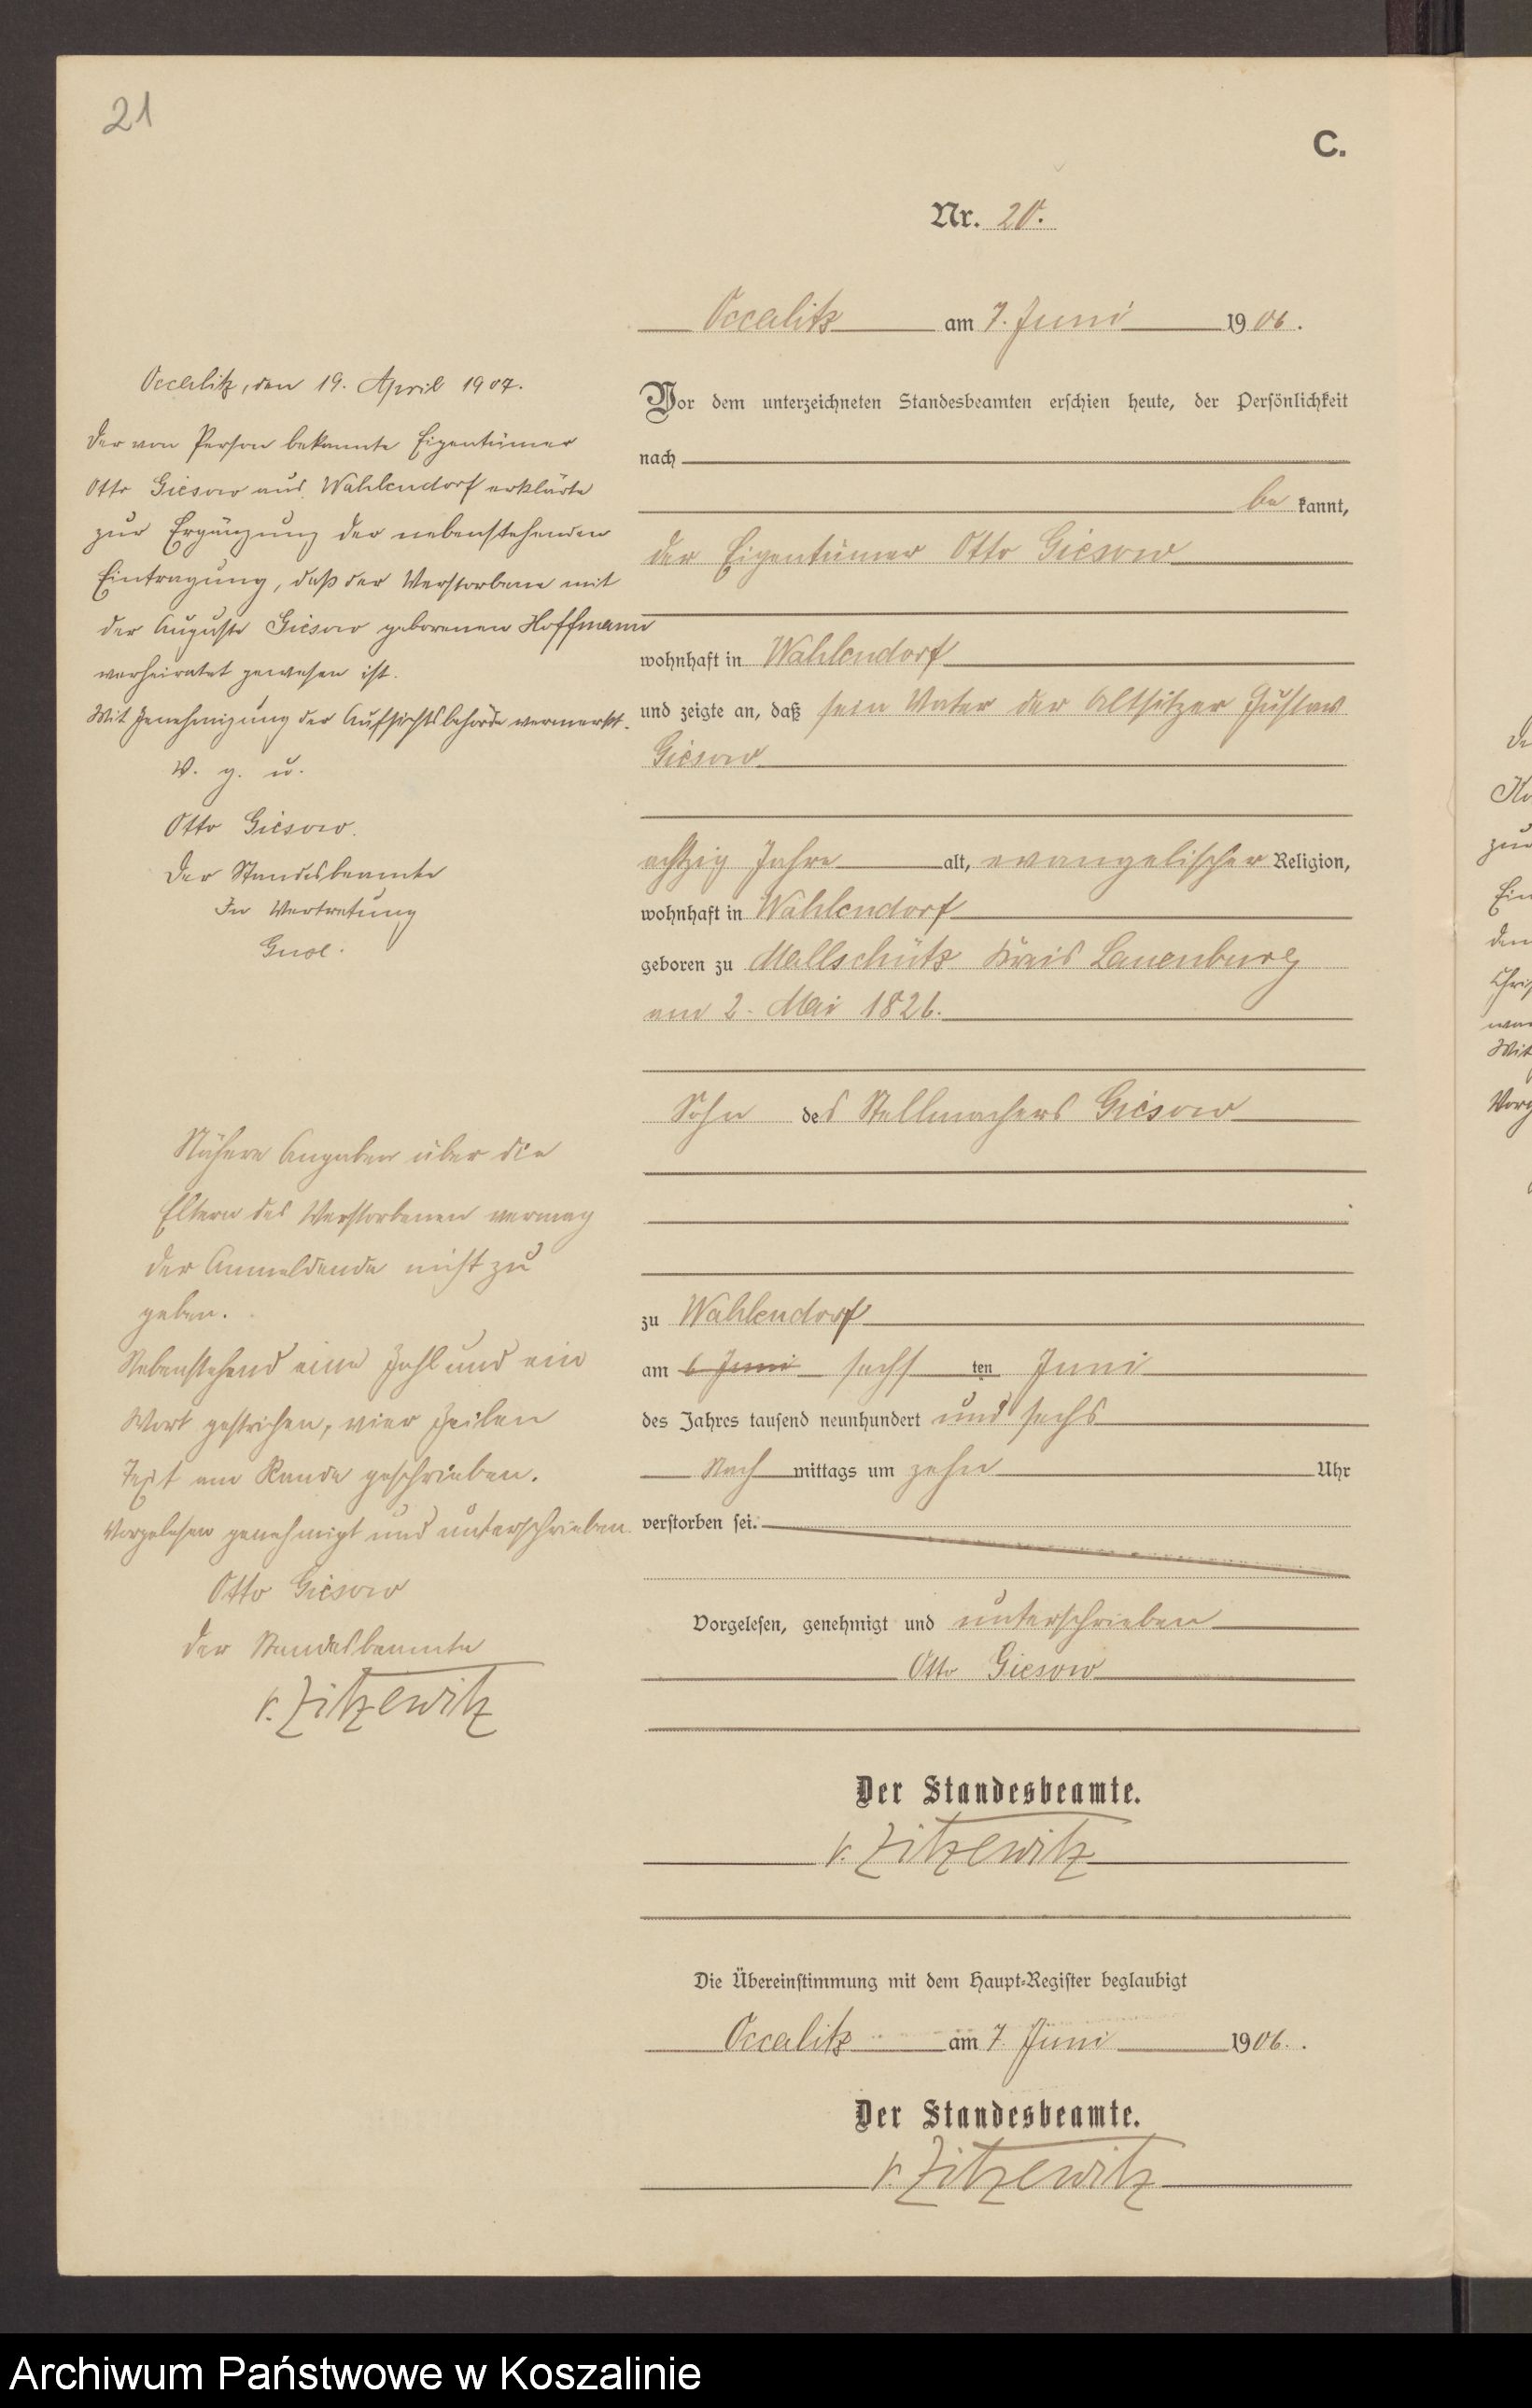 21
C.
Nr. 20.
Occalitz am 7. Juni 1906.
Vor dem unterzeichneten Standesbeamten erschien heute, der Persönlichkeit
nach
be kannt,
der Eigentümer Otto Giesow
wohnhaft in Wahlendorf
und zeigte an, daß sein Vater der Altsitzer Gustav
Giesow
achtzig Jahre alt, evangelischer Religion,
wohnhaft in Wahlendorf
geboren zu Mallschütz Kreis Lauenburg
am 2. Mai 1826.
Sohn des Stellmachers Giesow
zu Wahlendorf
am 6 Juni sechs ten Juni
des Jahres tausend neunhundert und sechs
Nach mittags um zehn Uhr
verstorben sei.
Vorgelesen, genehmigt und unterschrieben
Otto Giesow
Der Standesbeamte.
v. Zitzewitz
Die Übereinstimmung mit dem Haupt-Register beglaubigt
Occalitz am 7. Juni 1906.
Der Standesbeamte.
v. Zitzewitz
Occalitz, den 19. April 1907.
Der von Person bekannte Eigentümer
Otto Giesow aus Wahlendorf erklärte
zur Ergänzung der nebenstehenden
Eintragung, daß der Verstorbene mit
der Auguste Giesow geborenen Hoffmann
verheiratet gewesen ist.
Mit Genehmigung der Aufsichtsbehörde vermerkt.
V. g. u.
Otto Giesow.
Der Standesbeamte
In Vertretung
Nähere Angaben über die
Eltern des Verstorbenen vermag
der Anmeldende nicht zu
geben.
Nebenstehend eine Zahl und ein
Wort gestrichen, vier Zeilen
Text am Rande geschrieben.
Vorgelesen genehmigt und unterschrieben.
Otto Giesow
Der Standesbeamte
v. Zitzewitz
De
zur
Ein
den
Chris
Mit
Vorg
Archiwum Państwowe w Koszalinie